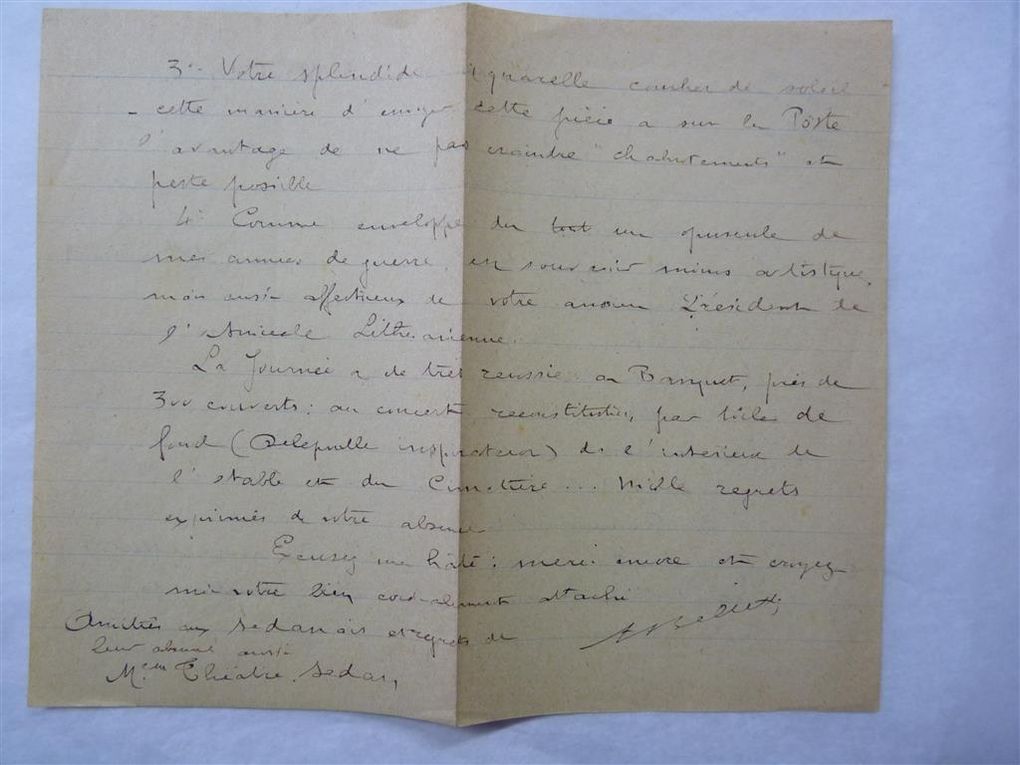 3° Votre splendide aquarelle coucher de soleil
- cette manière d'envoyer cette pièce a sur la Poste
l'avantage de ne pas craindre "chahutements" et
perte possible
4° Comme enveloppe du tout un opuscule de
mes années de guerre, en souvenir moins artistique,
mais aussi affectueux de votre ancien Président de
l'Amicale
La Journée a été très réussie: au Banquet, près de
300 couverts; au concert, reconstitution, par toile de
fond (inspirateur) de l'intérieur de
l'étable et du Cimetière... Mille regrets
exprimés de votre absence
Excusez ma hâte; merci encore et croyez
moi votre bien cordialement attaché
Amitiés aux Sedanais et regrets de
leur absence aussi
Théâtre. Sedan,